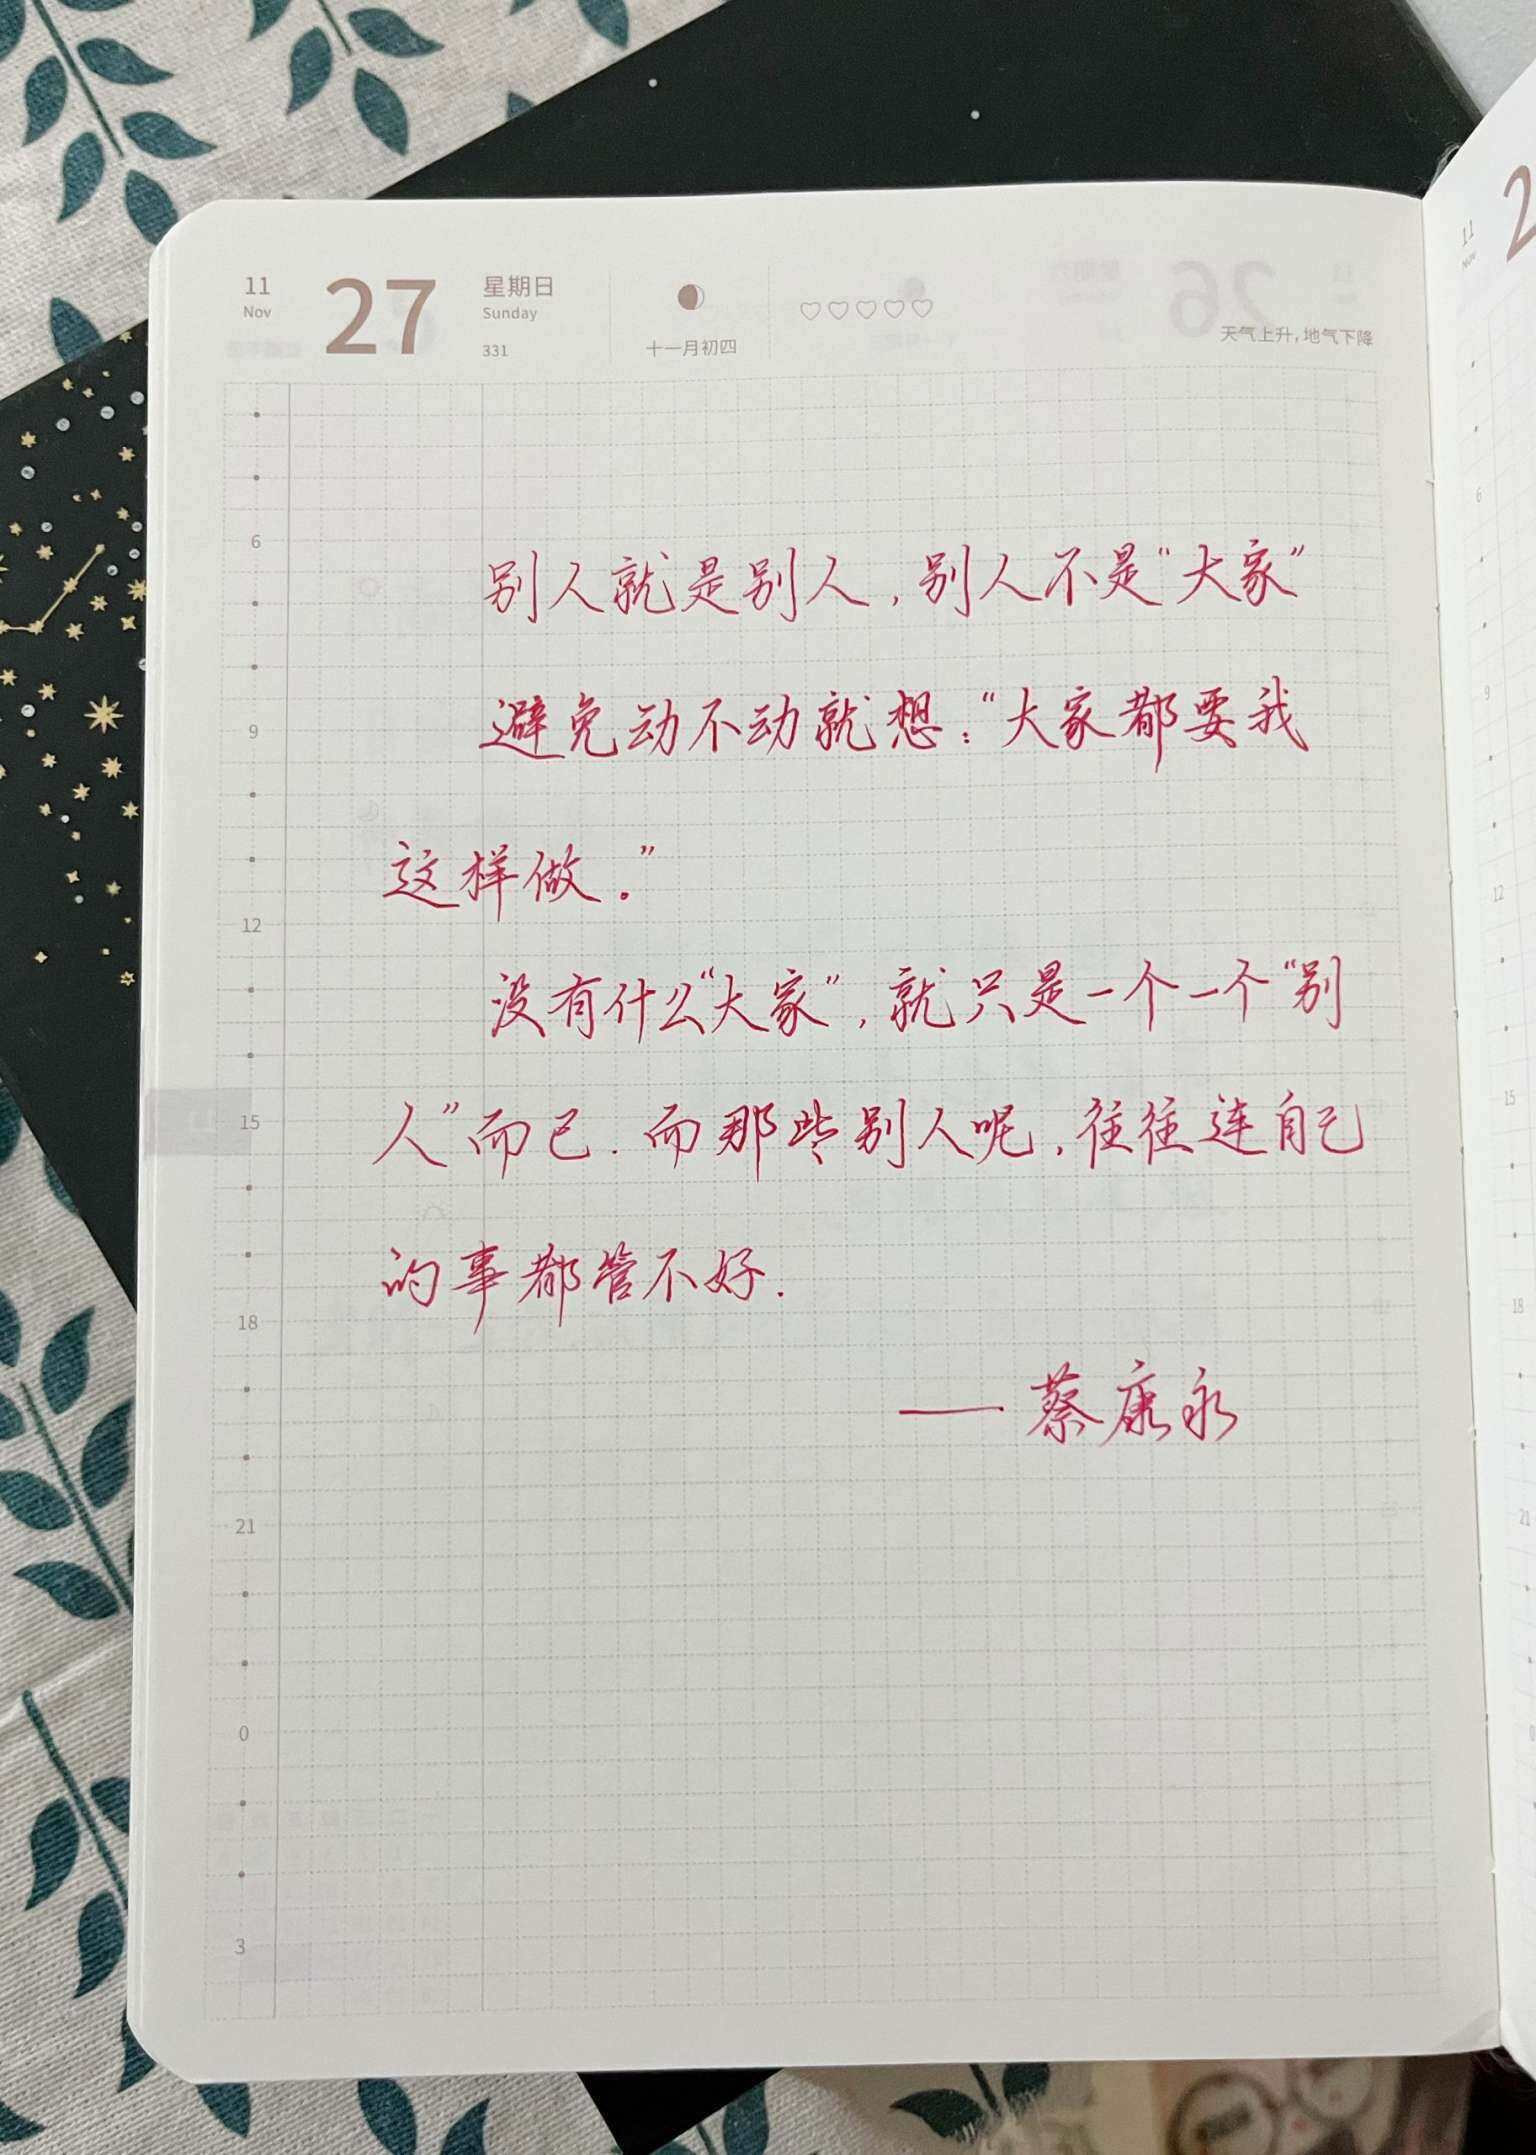 11
Nov
27
星期日
Sunday
331
十一月初四
天气上升,地气下降
别人就是别人,别人不是“大家”
避免动不动就想:“大家都要我
这样做。”
没有什么“大家”,就只是一个一个“别
人”而已.而那些别人呢,往往连自己
的事都管不好.
——蔡康永
6
9
12
15
18
21
0
3
11
Nov
2
6
9
12
15
18
21
0